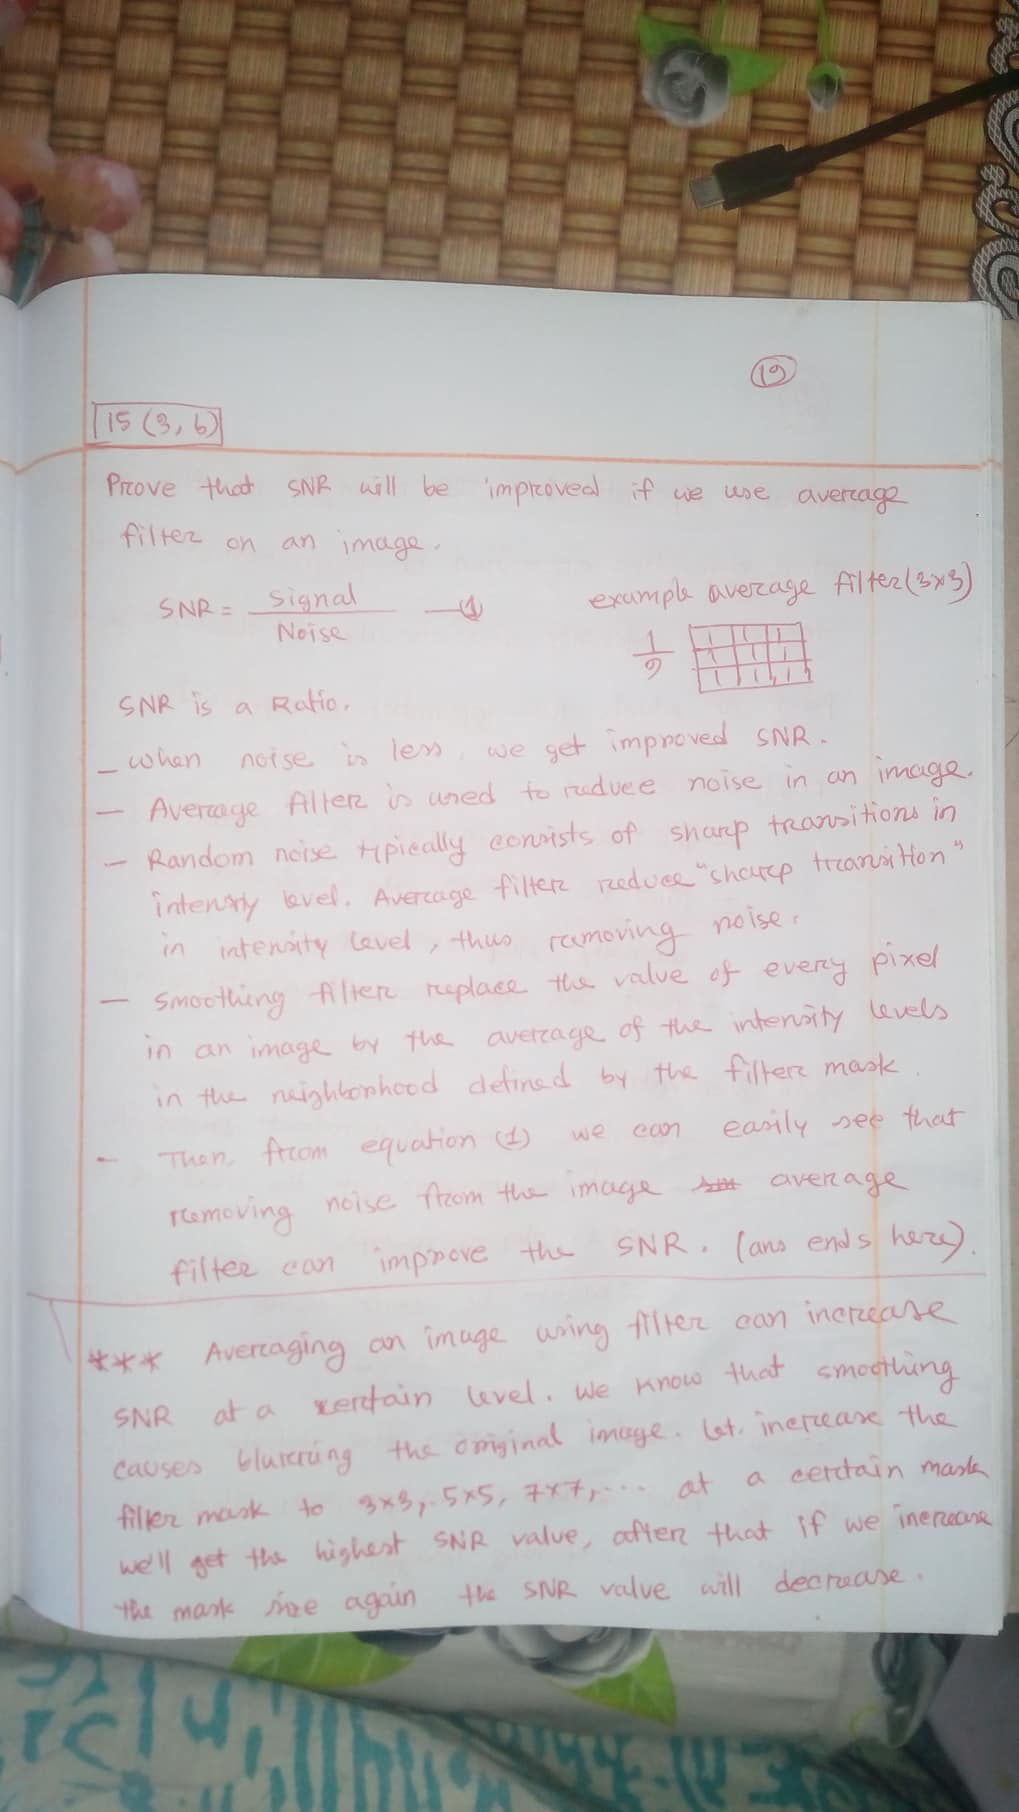 19
15 (3, b)
Prove that SNR will be improved if we use average
filter on an image.
example average filter (3×3)
SNR = Signal / Noise — (1)
1/9
1 1 1
1 1 1
1 1 1
SNR is a Ratio.
- when noise is less, we get improved SNR.
- Average filter is used to reduce noise in an image.
- Random noise typically consists of sharp transitions in
intensity level. Average filter reduce "sharp transition"
in intensity level, thus removing noise.
- smoothing filter replace the value of every pixel
in an image by the average of the intensity levels
in the neighborhood defined by the filter mask.
- Then, from equation (1) we can easily see that
removing noise from the image average
filter can improve the SNR. (ans ends here).
*** Averaging an image using filter can increase
SNR at a certain level. We know that smoothing
causes blurring the original image. let, increase the
filter mask to 3×3, 5×5, 7×7, ... at a certain mask
we'll get the highest SNR value, after that if we increase
the mask size again the SNR value will decrease.